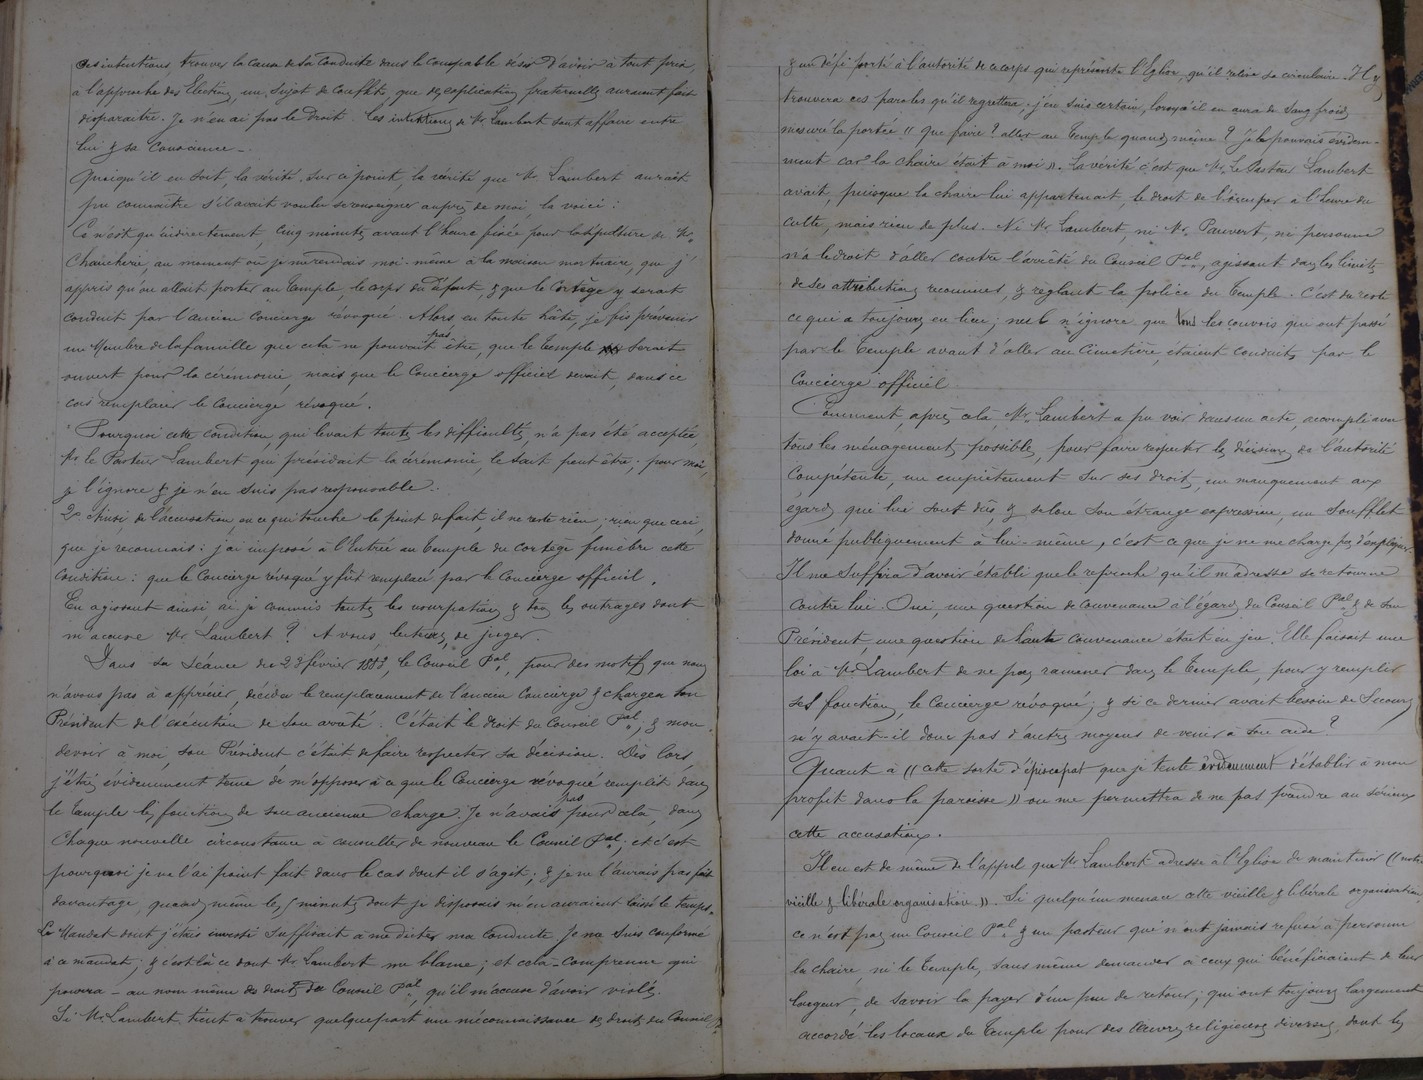 ses intentions, trouver la cause de sa conduite dans le coupable désir d'avoir à tout prix,
à l'approche des Elections, un sujet de conflits que des explications fraternelles auraient fait
disparaitre. Je n'en ai pas le droit. Les intentions de Mr. Lambert sont affaire entre
lui & sa conscience.
Quoiqu'il en soit, la vérité sur ce point, la vérité que Mr. Lambert aurait
pu connaitre s'il avait voulu se renseigner auprès de moi la voici :
Ce n'est qu'indirectement, cinq minutes avant l'heure fixée pour la sépulture de Mr.
Chaucherie, au moment où je me rendais moi-même à la maison mortuaire, que j'
appris qu'on allait porter au Temple, le corps du défunt & que le Cortège y serait
conduit par l'ancien concierge révoqué. Alors en toute hâte, je fis prévenir
un Membre de la famille que cela ne pouvait pas être, que le Temple serait
ouvert pour la cérémonie, mais que le Concierge officiel devait, dans ce
cas remplacer le Concierge révoqué.
Pourquoi cette condition, qui levait toutes les difficultés, n'a pas été acceptée,
Mr. le Pasteur Lambert qui présidait la cérémonie, le sait peut être ; pour moi,
je l'ignore & je n'en suis pas responsable.
2° Ainsi, de l'accusation, en ce qui touche le point de fait, il ne reste rien ; rien que ceci,
que je reconnais : j'ai imposé à l'Entrée au temple du cortège funèbre cette
condition : que le Concierge révoqué y fût remplacé par le Concierge officiel.
En agissant ainsi ai-je commis toutes les usurpations & tous les outrages dont
m'accuse Mr. Lambert ? A vous, lecteurs, de juger.
Dans sa séance du 23 février 1883, le Conseil Pal., pour des motifs que nous
n'avons pas à apprécier, décida le remplacement de l'ancien Concierge & chargea son
Président de l'exécution de son arrêté. C'était le droit du Conseil Pal ; & mon
devoir à moi, son Président c'était de faire respecter sa décision. Dès lors,
j'étais évidemment tenu de m'opposer à ce que le Concierge révoqué remplît dans
le Temple les fonctions de son ancienne charge. Je n'avais pas pour cela, dans
chaque nouvelle circonstance à consulter de nouveau le Conseil Pal. et c'est
pourquoi je ne l'ai point fait dans le cas dont il s'agit ; & je ne l'aurais pas fait
davantage, quand même les 5 minutes dont je disposais m'en auraient laissé le temps.
Le Mandat dont j'étais investi suffisait à me dicter ma conduite. Je me suis conformé
à ce mandat, & c'est là ce dont Mr. Lambert me blâme ; et cela - comprenne qui
pourra - au nom même des droits du Conseil Pal. qu'il m'accuse d'avoir violés.
Si Mr. Lambert tient à trouver quelque part une méconnaissance des droits du Conseil,
& un défi porté à l'autorité de ce corps qui représente l'Eglise, qu'il relise sa circulaire. Il y
trouvera ces paroles qu'il regrettera, j'en suis certain, lorsqu'il en aura de sang froid,
mesuré la portée (( Que faire ? aller au Temple quand même ? Je le pouvais évidem-
ment car la chaire était à moi )). La vérité c'est que Mr. Le Pasteur Lambert
avait, puisque la chaire lui appartenait, le droit de l'occuper à l'heure du
culte, mais rien de plus. Ni Mr. Lambert, ni Mr. Pauvert, ni personne
n'a le droit d'aller contre l'arrêté du Conseil Pal., agissant dans les limites
de ses attributions reconnues, & réglant la police du Temple. C'est du reste
ce qui a toujours eu lieu ; nul n'ignore que tous les convois qui ont passé
par le Temple avant d'aller au Cimetière, étaient conduits par le
Concierge officiel.
Comment, après cela, Mr. Lambert a pu voir dans un acte, accompli avec
tous les ménagements possibles, pour faire respecter les décisions de l'autorité
compétente, un empiètement sur ses droits, un manquement aux
égards qui lui sont dûs, & selon son étrange expression, un soufflet
donné publiquement à lui-même, c'est ce que je ne me charge pas d'expliquer.
Il me suffira d'avoir établi que le reproche qu'il m'adresse se retourne
contre lui. Oui, une question de convenance à l'égard du Conseil Pal & de son
Président, une question de haute convenance était en jeu. Elle faisait une
loi à Mr. Lambert de ne pas ramener dans le Temple, pour y remplir
ses fonctions, le Concierge révoqué ; & si ce dernier avait besoin de secours
n'y avait-il donc pas d'autres moyens de venir à son aide ?
Quant à (( cette sorte d'épiscopat que je tente évidemment d'établir à mon
profit dans la paroisse )) on me permettra de ne pas prendre au sérieux
cette accusation.
Il en est de même de l'appel que Mr. Lambert adresse à l'Eglise de maintenir (( notre
vieille & libérale organisation )). Si quelqu'un menace cette vieille & libérale organisation
ce n'est pas un Conseil Pal. & un pasteur qui n'ont jamais refusé à personne
la chaire ni le Temple, sans même demander à ceux qui bénéficiaient de leur
largeur, de savoir la payer d'un peu de retour ; qui ont toujours largement
accordé les locaux du Temple pour des œuvres religieuses diverses, dont les